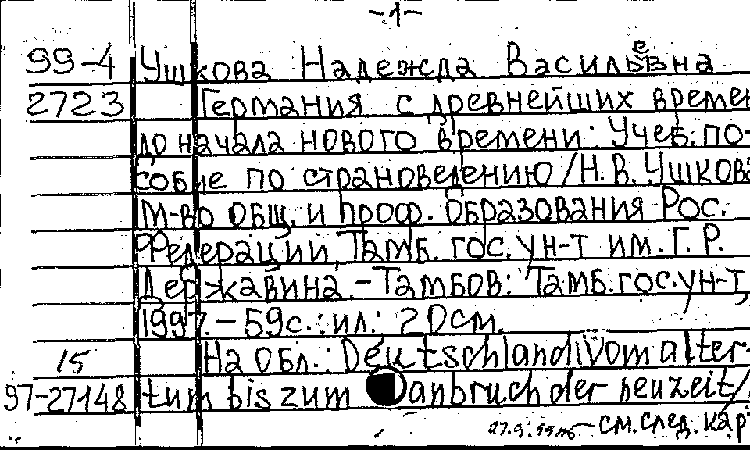 -1-
99-4 Ушкова Надежда Васильевна
2723 Германия с древнейших времен
до начала нового времени: Учеб. по-
собие по страноведению / Н.В. Ушкова
М-во общ. и проф. образования Рос.
Федерации, Тамб. гос. ун-т им. Г.Р.
Державина. - Тамбов: Тамб. гос. ун-т,
1997. - 59с.: ил.; 20см.
15 На обл.: Deutschland: Vom alter-
97-27148 tum bis zum anbruch der neuzeit/
- см. след. кар